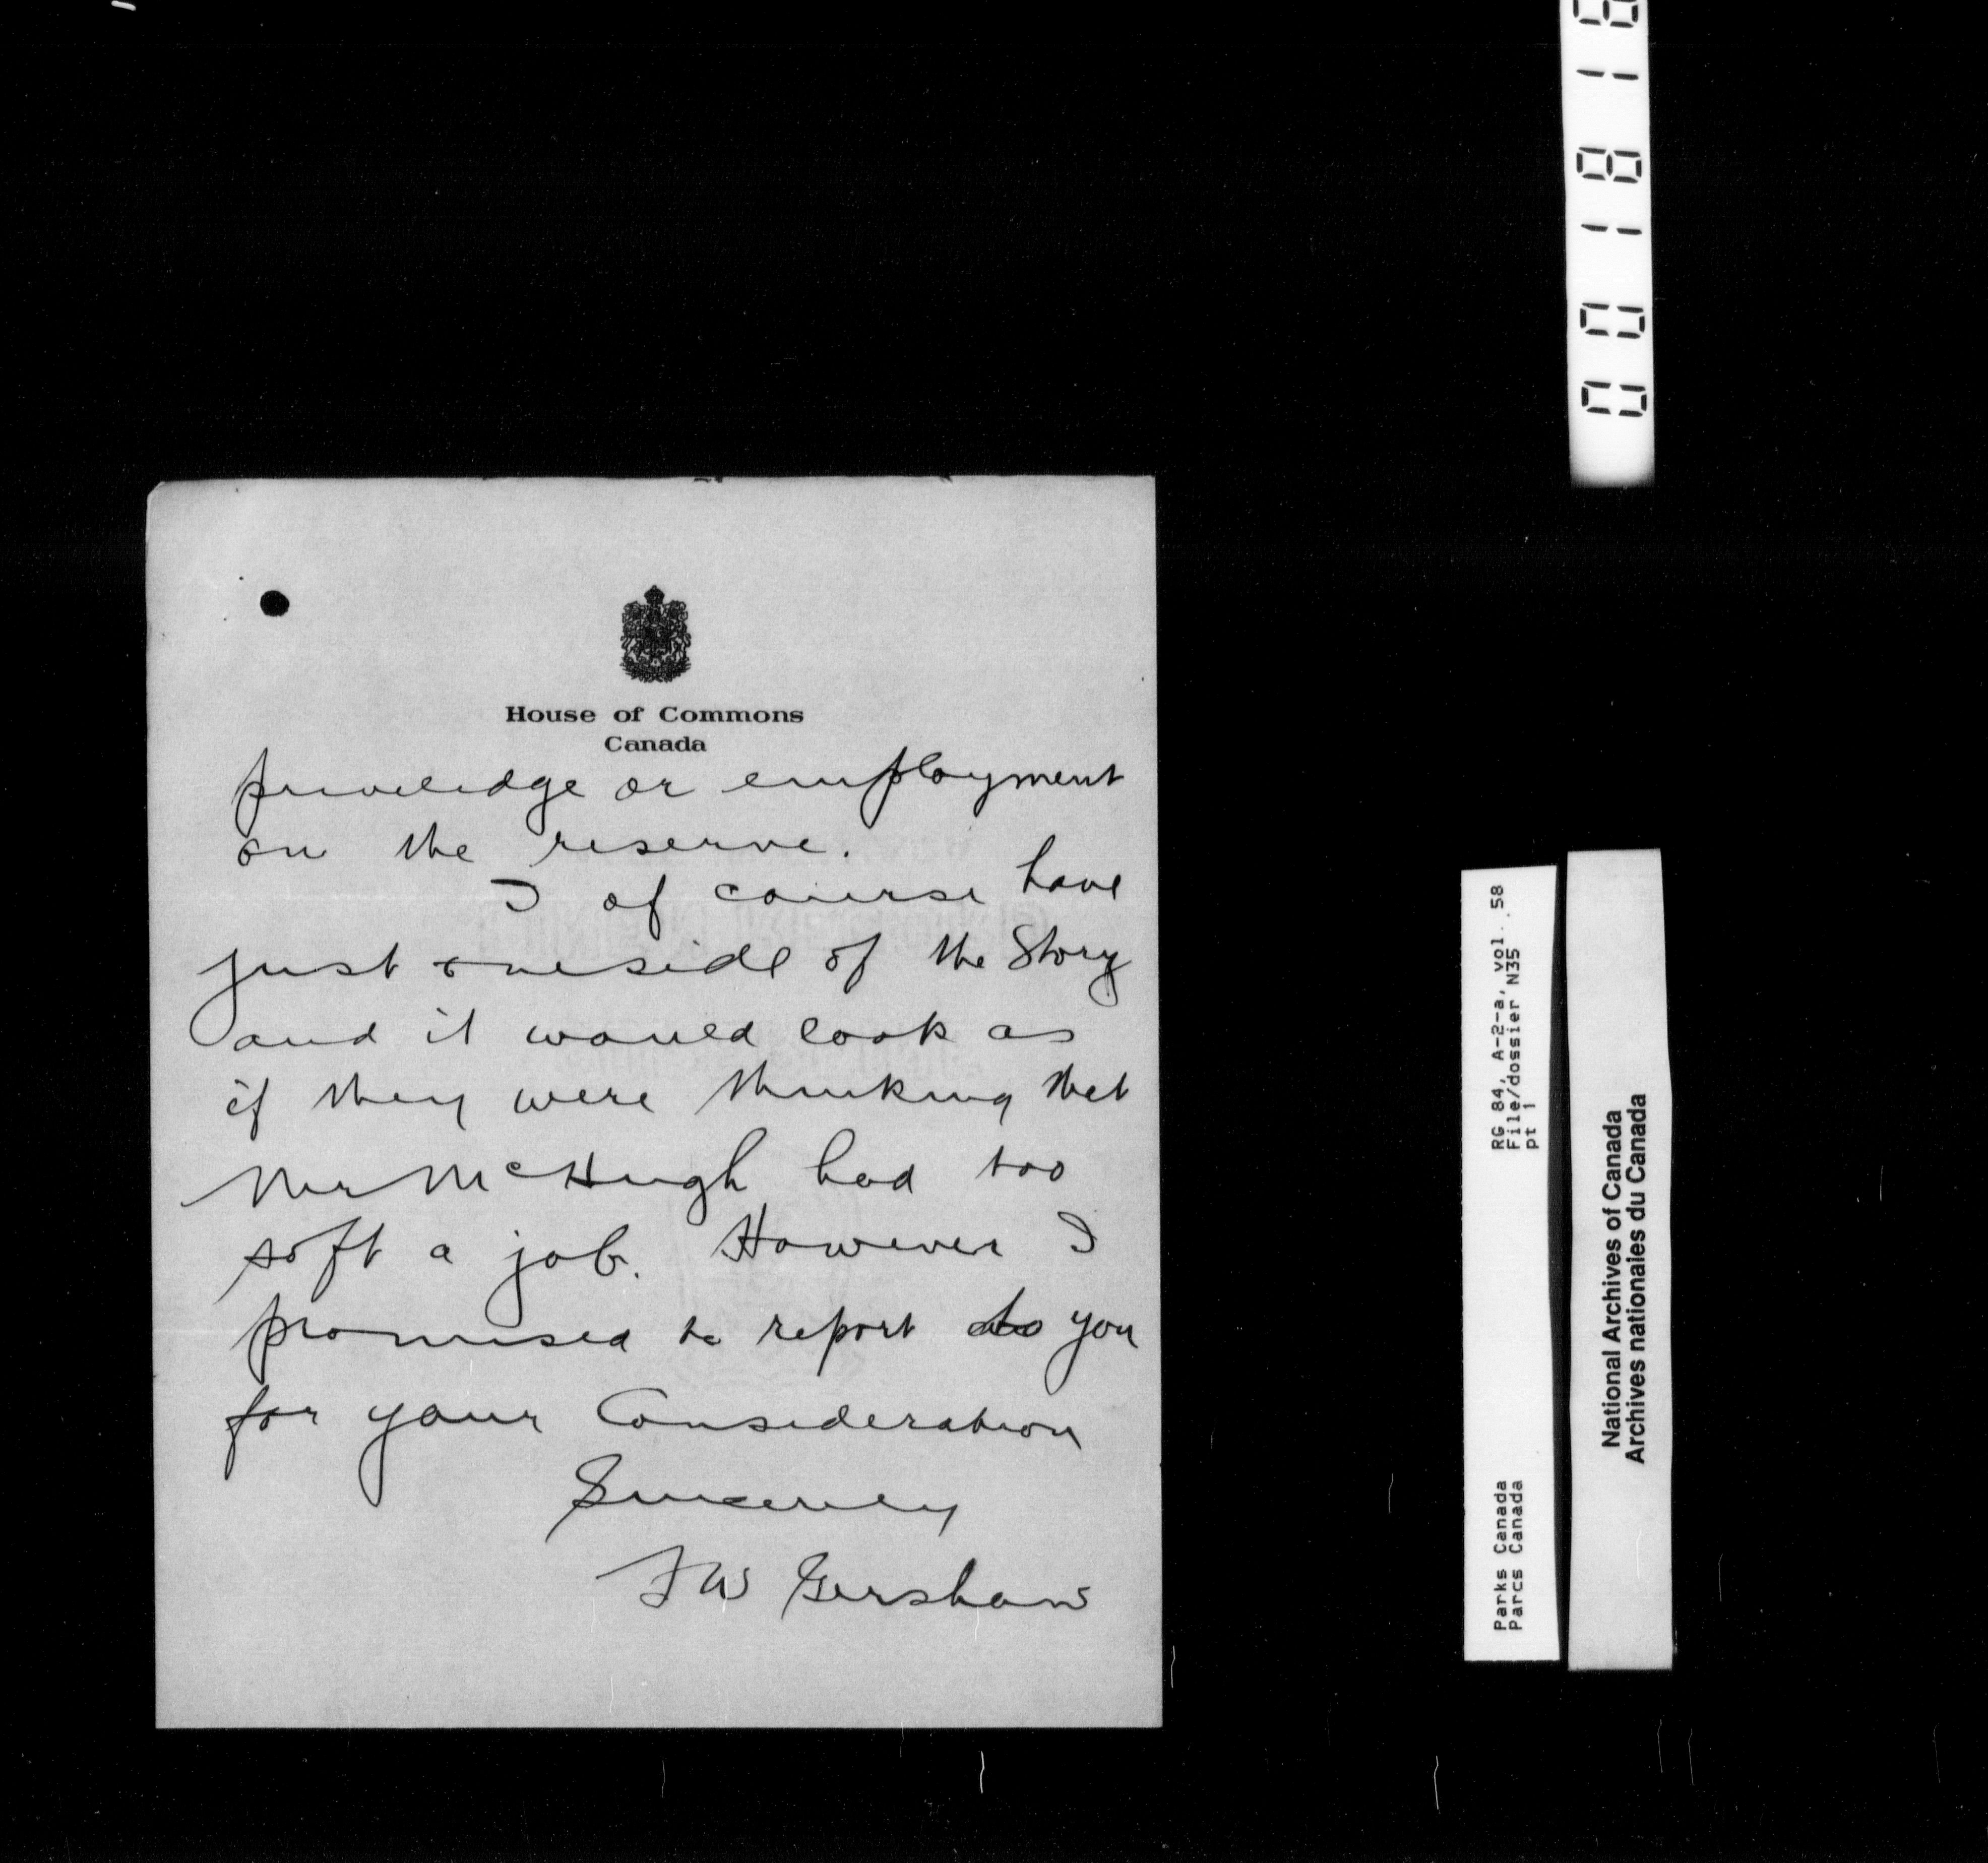 House of Commons
Canada
priveledge or employment
on the reserve.
I of course have
just oneside of the Story
and it would look as
if they were thinking that
Mr McHugh had too
soft a job. However I
promised to report to you
for your Consideration
Sincerely
FW Gershaw
RG 84, A-2-a, vol. 58
File/dossier N35
pt 1
Parks Canada
Parcs Canada
National Archives of Canada
Archives nationales du Canada